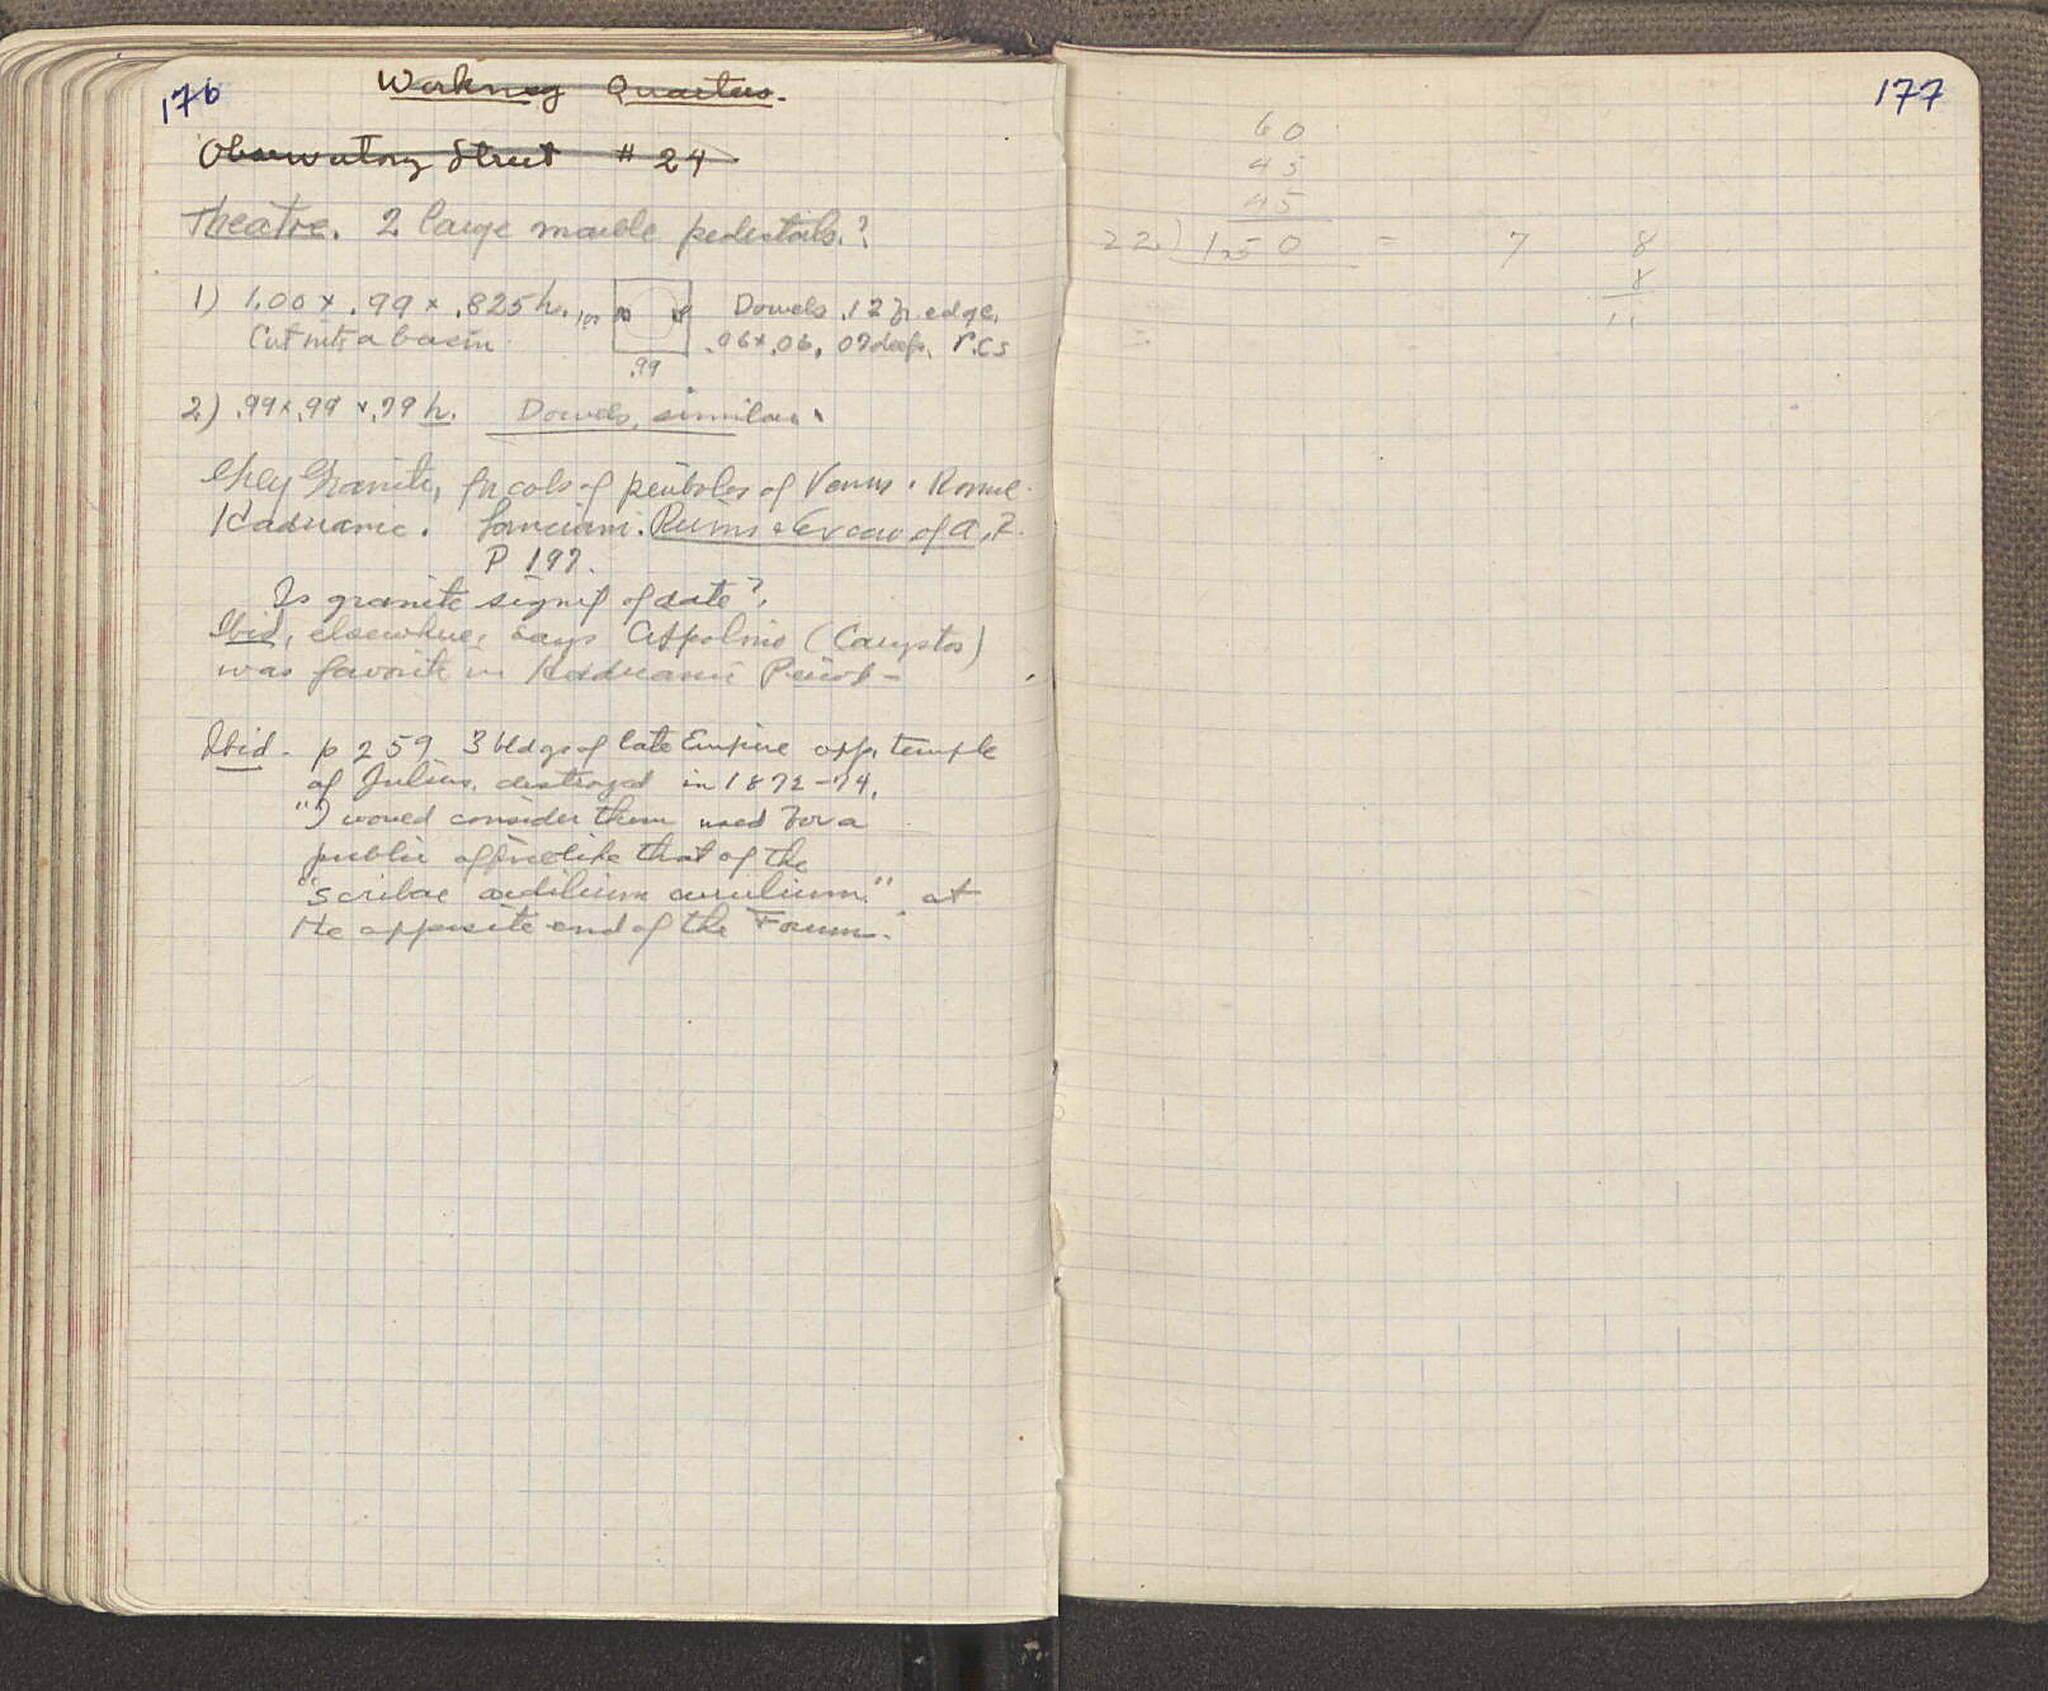 176
Working Quarters.
Observatory Street # 24
Theatre. 2 large marble pedestals.?
1) 1.00 x .99 x .825 h. Dowels .12 fr. edge.
Cut into a basin .06 x .06, 07 deep. r.cs
.99
2) .99 x .99 x .79 h. Dowels, similar.
Grey Granite, for cols of peribolos of Venus. Rome.
Hadrianic. Lanciani. Ruins & Excav of A.R.
P 197.
Is granite signif of date?
Ibid, elsewhere, says Cippolino (Carystos)
was favorite in Hadrianic Period -
Ibid - p 259 3 bldgs of late Empire opp. temple
of Julius, destroyed in 1872-74.
"I would consider them used for a
public office like that of the
"scribae aedilium curulium." at
the opposite end of the Forum.
177
60
45
45
22) 150 = 7 8
8
11